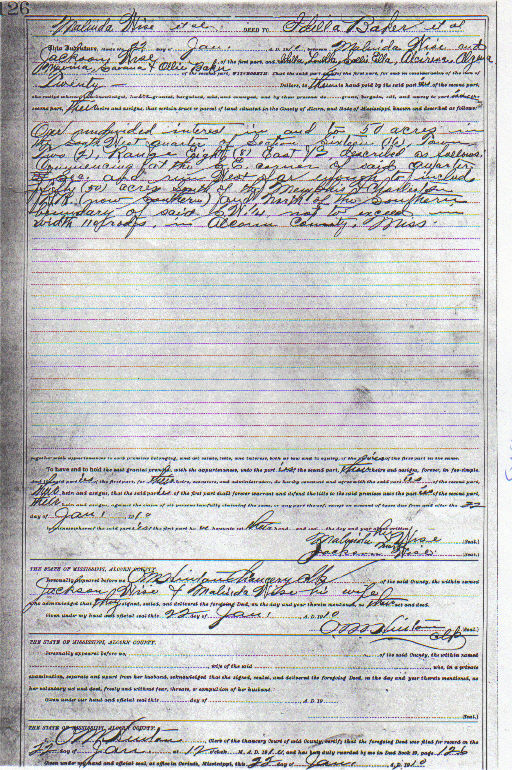 126
Malinda Wise et al DEED TO Idella Baker et al
This Indenture, made the 22 day of Jan. A.D. 19 between Malinda Wise and
Jackson Wise of the first part, and Idella
Minnie, & Ollie Baker of the second part, WITNESSETH: That the said part of the first part, for and in consideration of the sum of
Twenty Dollars, to them in hand paid by the said part ies of the second
second part, their heirs and assigns, that certain tract or parcel of land situated in the County of Alcorn, and State of Mississippi, known and described as follows:
Our undivided interest in and to 50 acres in
the South West quarter of Section Sixteen (16), Town
two (2), Range eight (8) East & described as follows.
Commencing at the S. E. corner of said Quarter
Sec and run West far enough to include
fifty (50) acres South of the Memphis & Charleston
R.R. (now Southern) and North of the Southern
boundary of said to not to exceed in
width 110 rods, in Alcorn County, Miss.
together with appurtenances to said premises belonging, and all estate, title, and interest, both at law and in equity, of the part ies of the first part in the same.
To have and to hold the said granted premises, with the appurtenances, unto the part ies of the second part, their heirs and assigns, forever, in fee-simple.
and said part ies of the first part, for their heirs, executors, and administrators, do hereby covenant and agree with the said part ies of the second part,
their heirs and assigns, that the said part ies of the first part shall forever warrant and defend the title to the said premises unto the part ies of the second part,
their heirs and assigns against the claim of all persons lawfully claiming the same or any part thereof, from and after the 22
day of Jan. 1910
In witness whereof the said part ies of the first part have hereunto set their hand and seal the day and year above written
his
Malinda Wise (Seal.)
mark
Jackson Wise (Seal.)
THE STATE OF MISSISSIPPI, ALCORN COUNTY.
Personally appeared before me, Chancery Clk of the said County, the within named
Jackson Wise & Malinda Wise his wife
who acknowledged that they signed, sealed, and delivered the foregoing Deed, on the day and year therein mentioned, as their act and deed.
Given under my hand and official seal this 22 day of Jan. A.D. 1910
(Seal.)
Clk
THE STATE OF MISSISSIPPI, ALCORN COUNTY.
Personally appeared before me, of the said County, the within named
wife of the said who, in a private
examination, separate and apart from her husband, acknowledged that she signed, sealed, and delivered the foregoing Deed, on the day and year therein mentioned, as
her voluntary act and deed, freely and without fear, threats, or compulsion of her husband.
Given under my hand and official seal this day of A.D. 19
(Seal.)
THE STATE OF MISSISSIPPI, ALCORN COUNTY.
Clerk of the Chancery Court of said County, certify that the foregoing Deed was filed for record on the
22 day of Jan. at 12 o'clock M., A.D. 1910, and has been duly recorded by me in Deed Book 19, page 126
Given under my hand and official seal, at office in Corinth, Mississippi, this 22 day of Jan. A.D. 1910